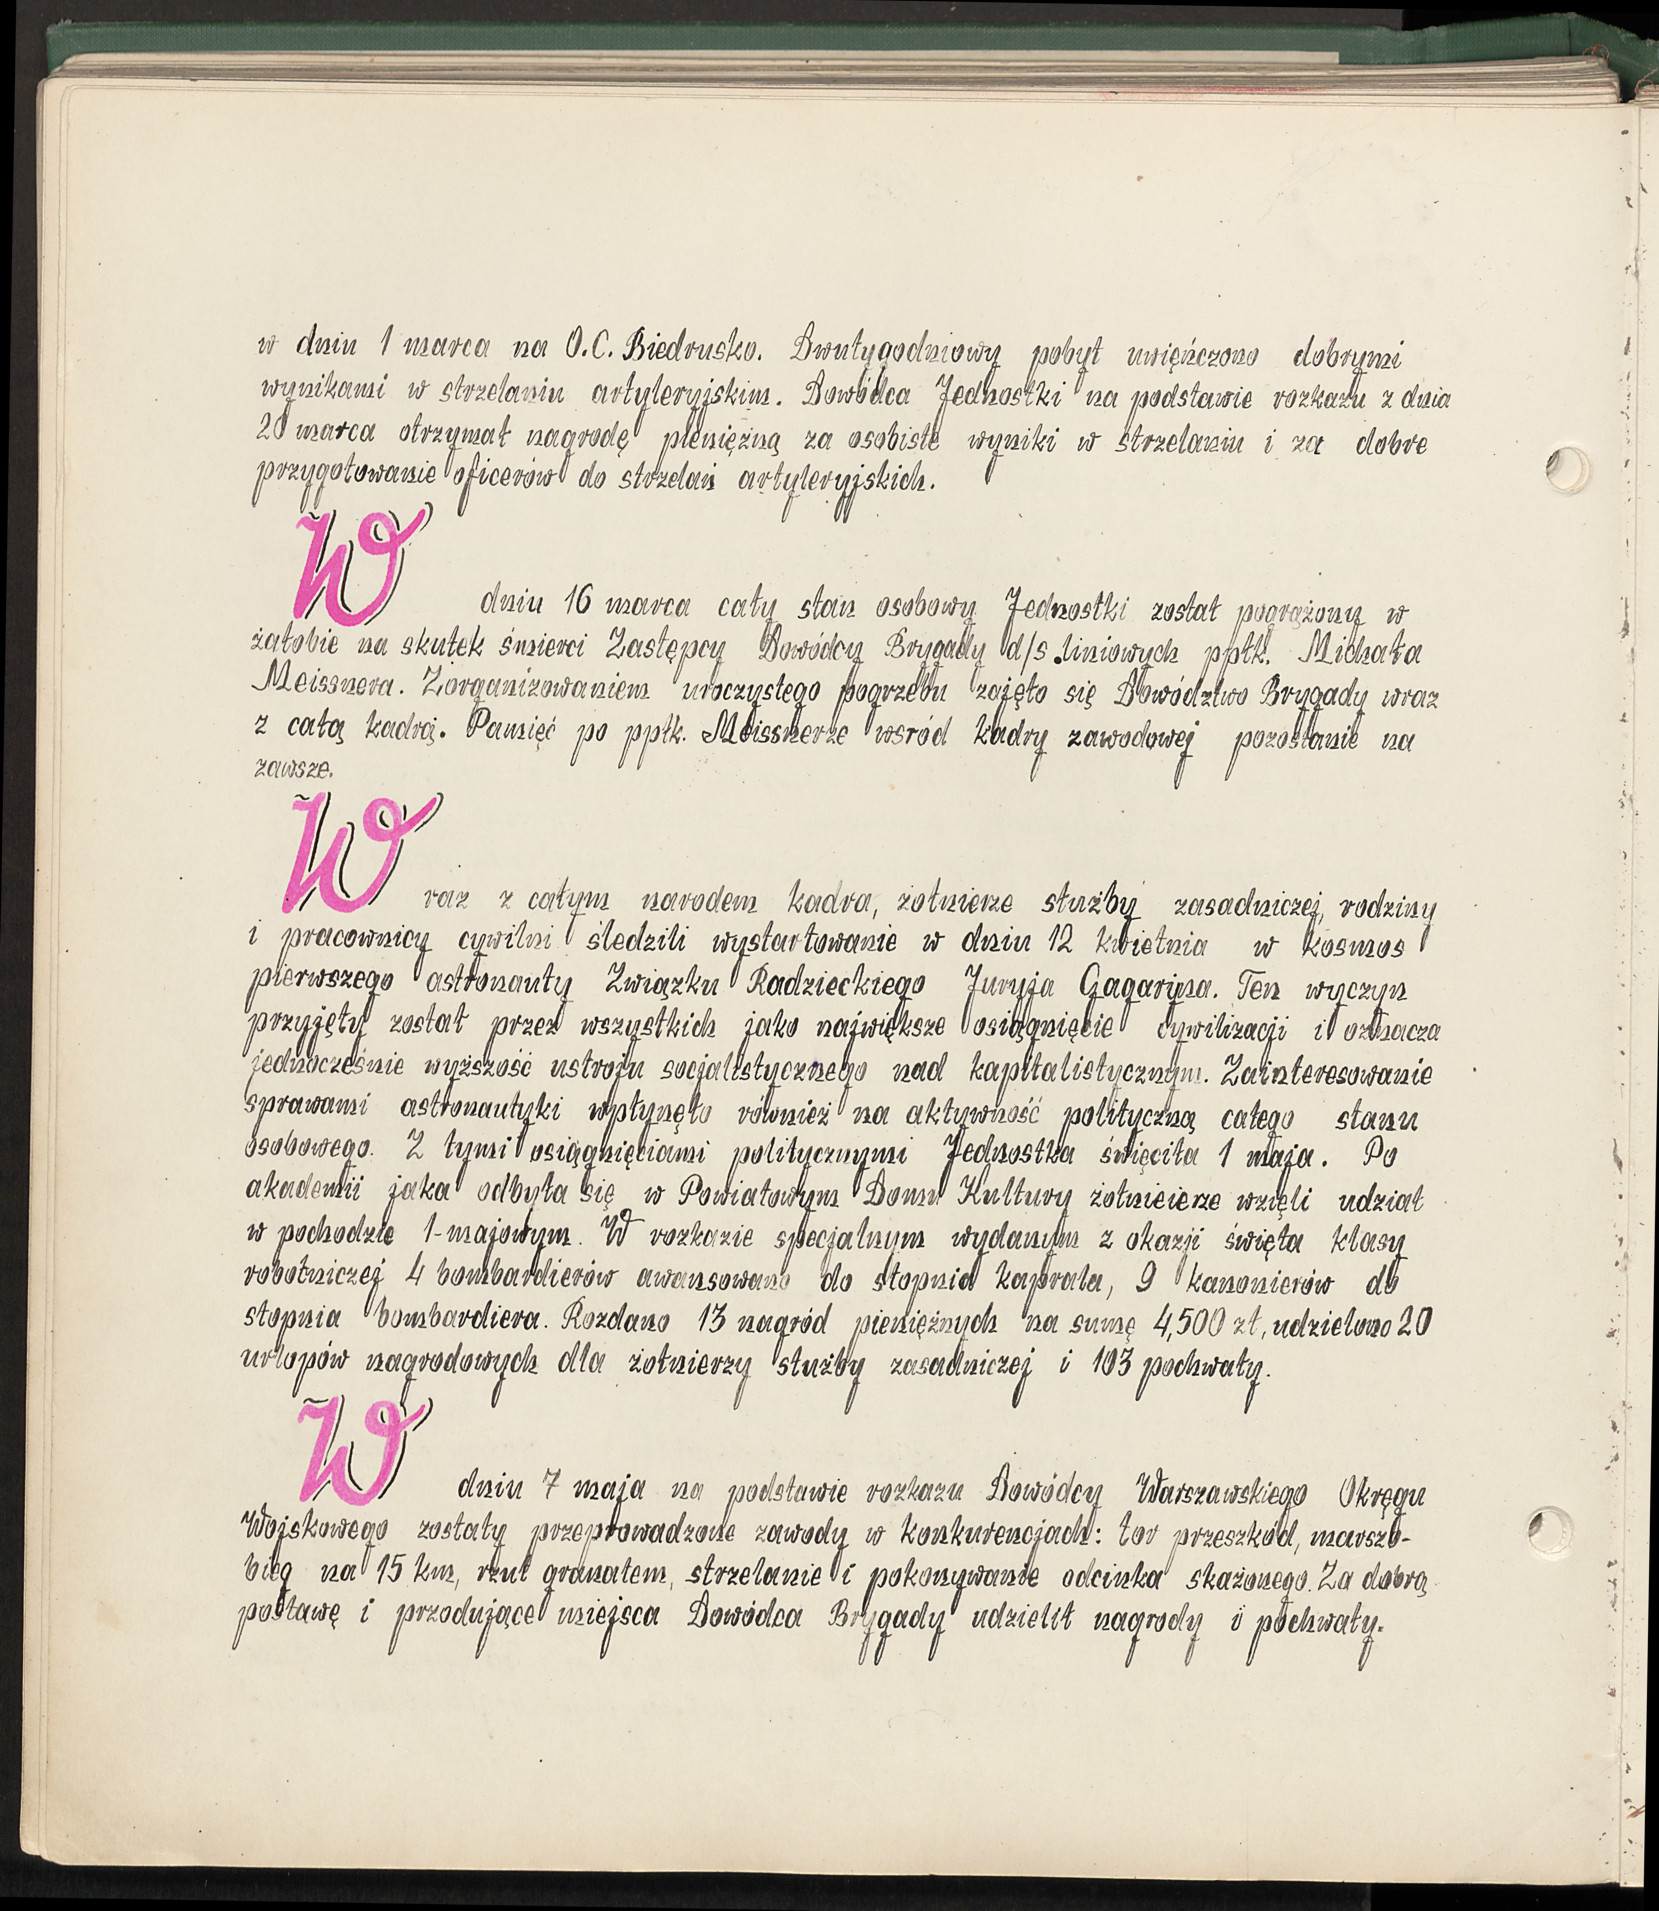 w dniu 1 marca na O.C. Biedrusko. Dwutygodniowy pobyt uwięńczono dobrymi
wynikami w strzelaniu artyleryjskim. Dowódca Jednostki na podstawie rozkazu z dnia
20 marca otrzymał nagrodę pieniężną za osobiste wyniki w strzelaniu i za dobre
przygotowanie oficerów do strzelań artyleryjskich.
W dniu 16 marca cały stan osobowy Jednostki został pogrążony w
żałobie na skutek śmierci Zastępcy Dowódcy Brygady d/s liniowych ppłk. Michała
Meissnera. Zorganizowaniem uroczystego pogrzebu zajęło się Dowództwo Brygady wraz
z całą kadrą. Pamięć po ppłk. Meissnerze wśród kadry zawodowej pozostanie na
zawsze.
Wraz z całym narodem kadra, żołnierze służby zasadniczej, rodziny
i pracownicy cywilni śledzili wystartowanie w dniu 12 kwietnia w kosmos
pierwszego astronauty Związku Radzieckiego Juryja Gagaryna. Ten wyczyn
przyjęty został przez wszystkich jako największe osiągnięcie cywilizacji i oznacza
jednocześnie wyższość ustroju socjalistycznego nad kapitalistycznym. Zainteresowanie
sprawami astronautyki wpłynęło również na aktywność polityczną całego stanu
osobowego. Z tymi osiągnięciami politycznymi Jednostka święciła 1 maja. Po
akademii jaka odbyła się w Powiatowym Domu Kultury żołnieierze wzięli udział
w pochodzie 1-majowym. W rozkazie specjalnym wydanym z okazji święta klasy
robotniczej 4 bombardierów awansowano do stopnia kaprala, 9 kanonierów do
stopnia bombardiera. Rozdano 13 nagród pieniężnych na sumę 4,500 zł, udzielono 20
urlopów nagrodowych dla żołnierzy służby zasadniczej i 103 pochwały.
W dniu 7 maja na podstawie rozkazu Dowódcy Warszawskiego Okręgu
Wojskowego zostały przeprowadzone zawody w konkurencjach: tor przeszkód, marszo-
bieg na 15 km, rzut granatem, strzelanie i pokonywanie odcinka skażonego. Za dobrą
postawę i przodujące miejsca Dowódca Brygady udzielił nagrody i pochwały.